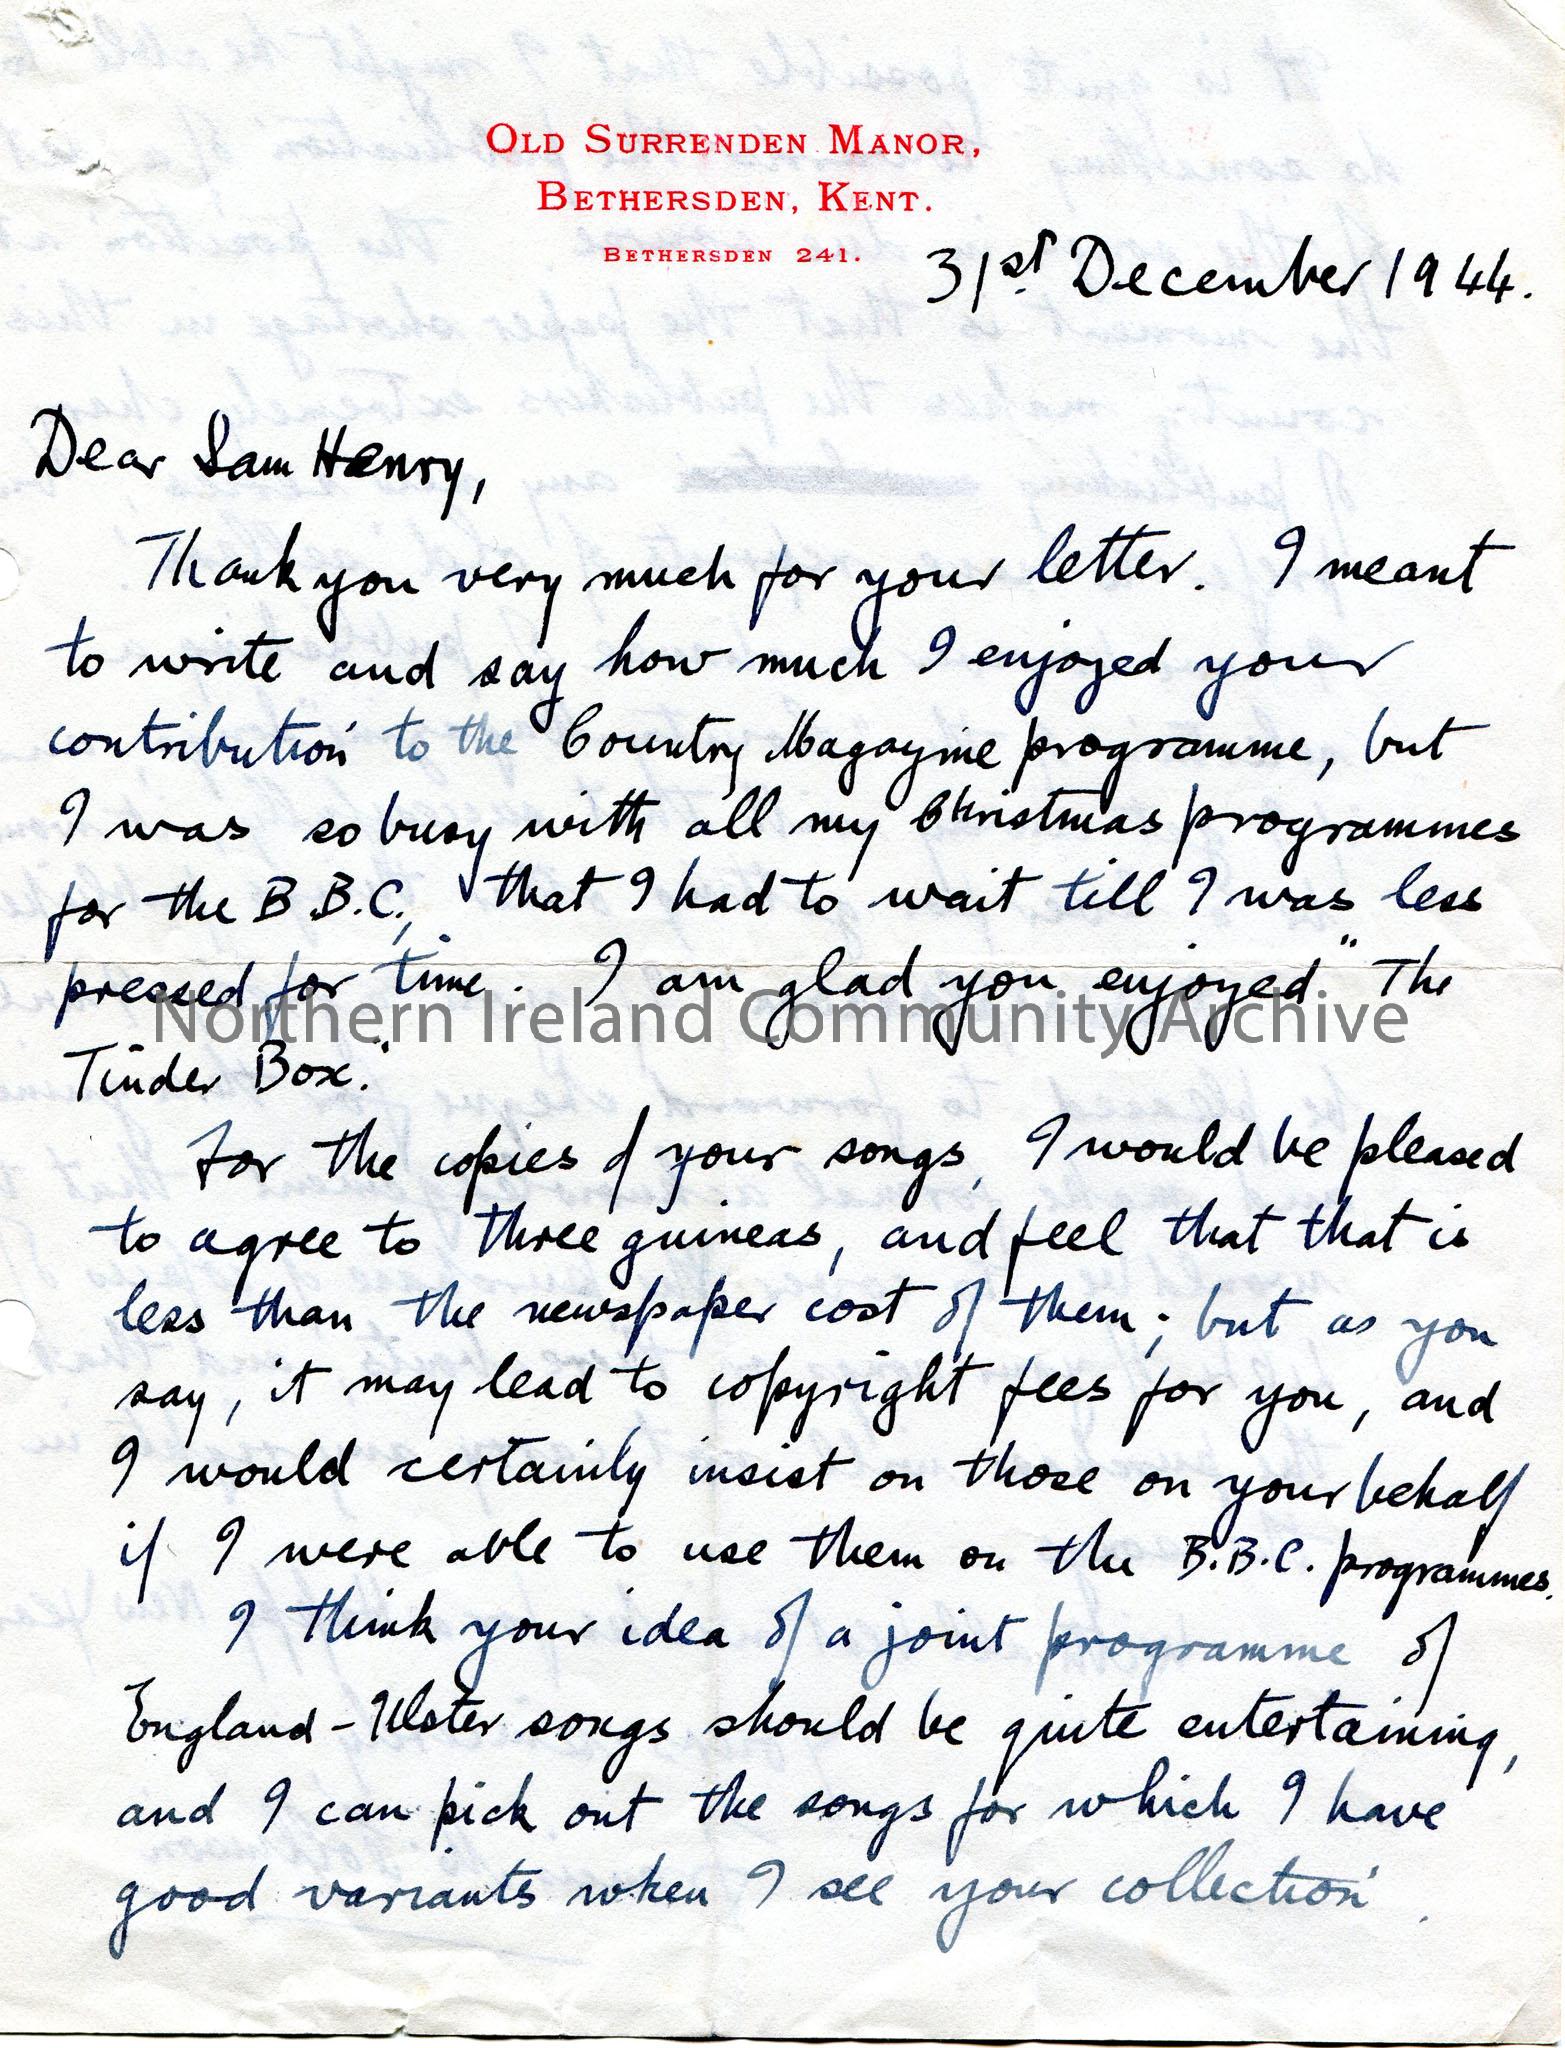 OLD SURRENDEN MANOR,
BETHERSDEN, KENT.
BETHERSDEN 241.
31st December 1944.
Dear Sam Henry,
Thank you very much for your letter. I meant
to write and say how much I enjoyed your
contribution to the Country Magazine programme, but
I was so busy with all my Christmas programmes
for the B.B.C., that I had to wait till I was less
pressed for time. I am glad you enjoyed "The
Northern Ireland Community Archive
Tinder Box."
For the copies of your songs, I would be pleased
to agree to three guineas, and feel that that is
less than the newspaper cost of them; but as you
say, it may lead to copyright fees for you, and
I would certainly insist on those on your behalf
if I were able to use them on the B.B.C. programmes.
I think your idea of a joint programme of
England-Ulster songs should be quite entertaining,
and I can pick out the songs for which I have
good variants when I see your collection.